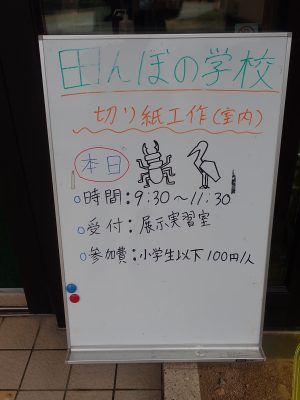 田んぼの学校
切り紙工作(室内)
本日
○時間:9:30～11:30
○受付:展示実習室
○参加費:小学生以下100円/人